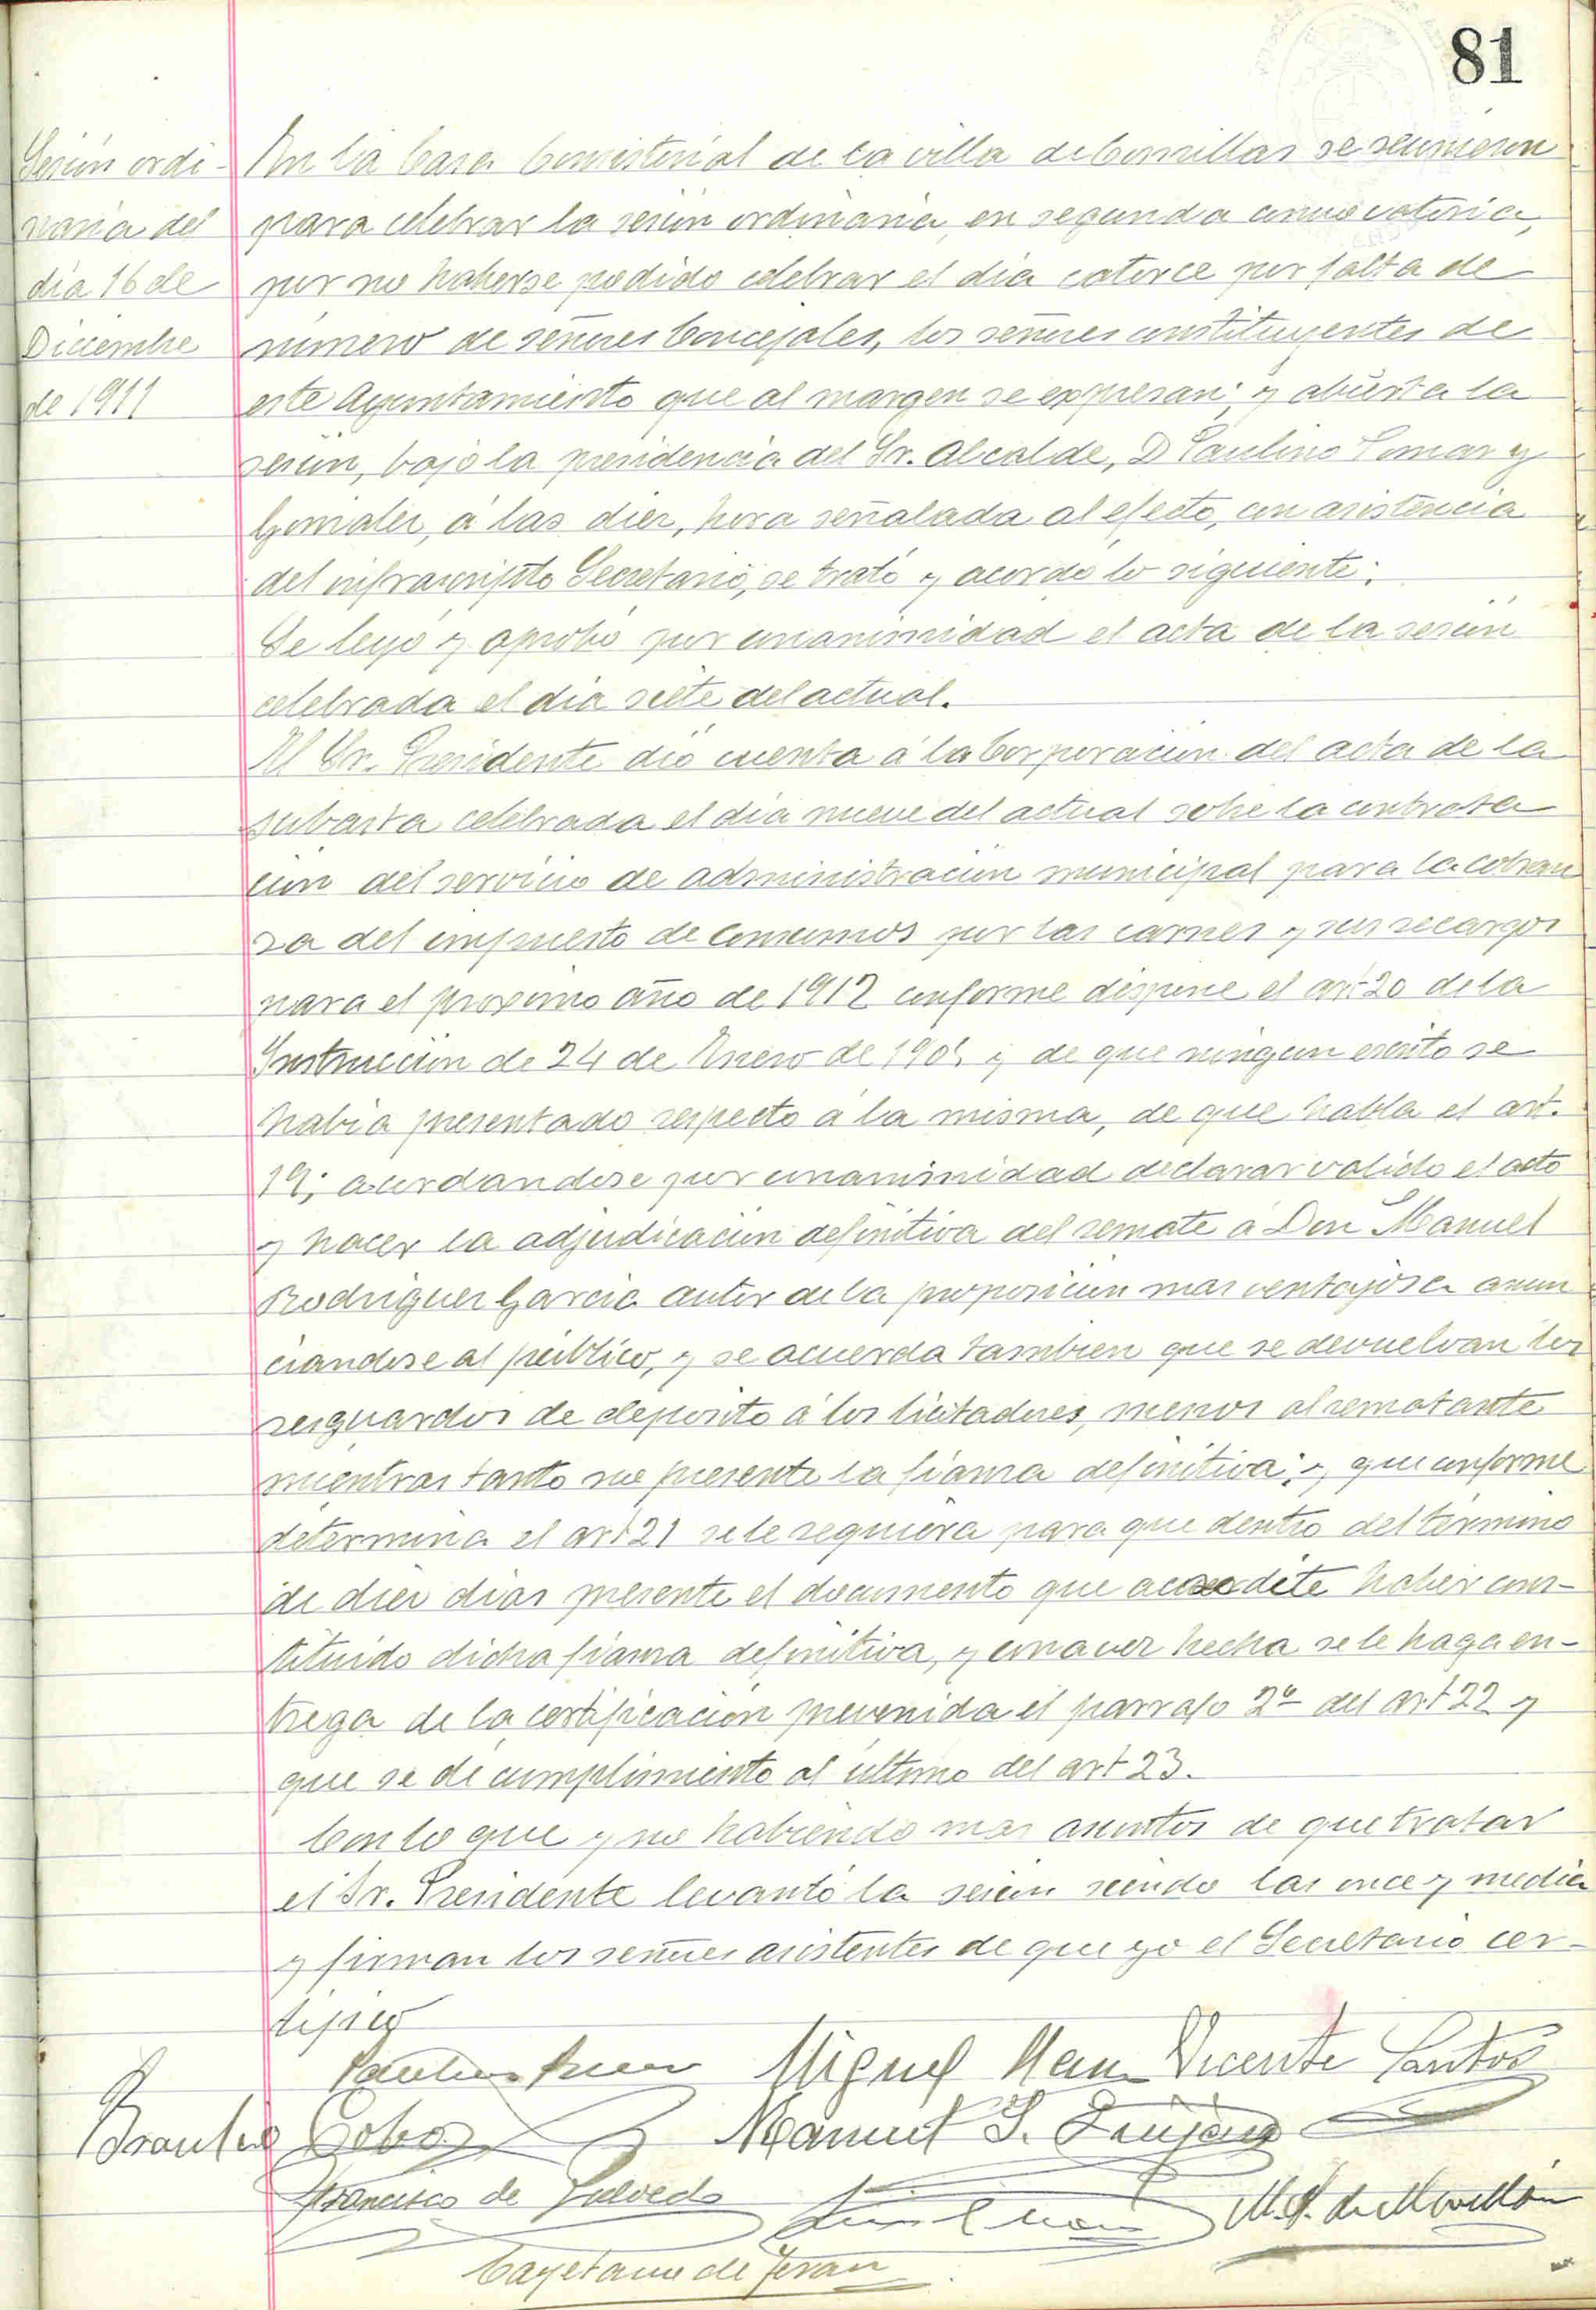 81
Sesión ordi-
naria del
día 16 de
Diciembre
de 1911
En la Casa Consistorial de la villa de Comillas se reunieron
para celebrar la sesión ordinaria, en segunda convocatoria,
por no haberse podido celebrar el día catorce por falta de
número de señores Concejales, los señores constituyentes de
este Ayuntamiento que al margen se expresan; y abierta la
sesión, bajo la presidencia del Sr. Alcalde, D Paulino y
Gonzalez, á las diez, hora señalada al efecto, con asistencia
del infrascripto Secretario, se trató y acordó lo siguiente:
Se leyó y aprobó por unanimidad el acta de la sesión
celebrada el día siete del actual.
El Sr. Presidente dió cuenta á la Corporación del acta de la
subasta celebrada el día nueve del actual sobre la contrata
ción del servicio de administración municipal para la cobran
za del impuesto de Consumos por las carnes y sus recargos
para el proximo año de 1912 conforme dispone el art 20 de la
Instrucción de 24 de Enero de 1905 y de que ningun escrito se
habia presentado respecto á la misma, de que habla el art.
19; acordandose por unanimidad declarar valido el acto
y hacer la adjudicación definitiva del remate á Don Manuel
Rodriguez Garcia autor de la proposición mas ventajosa anun
ciandose al público, y se acuerda tambien que se devuelvan los
resguardos de deposito á los licitadores, menos al rematante
mientras tanto no presente la fianza definitiva; y que conforme
determina el art 21 se le requiera para que dentro del término
de diez dias presente el documento que acredite haber cons-
tituido dicha fianza definitiva, y una vez hecha se le haga en-
trega de la certificación prevenida el parrafo 2º del art 22 y
que se dé cumplimiento al último del art 23.
Con lo que y no habiendo mas asuntos de que tratar
el Sr. Presidente levantó la sesión siendo las once y media
y firman los señores asistentes de que yo el Secretario cer-
tifico
Paulino Miguel Vicente Santos
Braulio Cobo Manuel S.
Francisco de
M. S. de
Cayetano de Terán